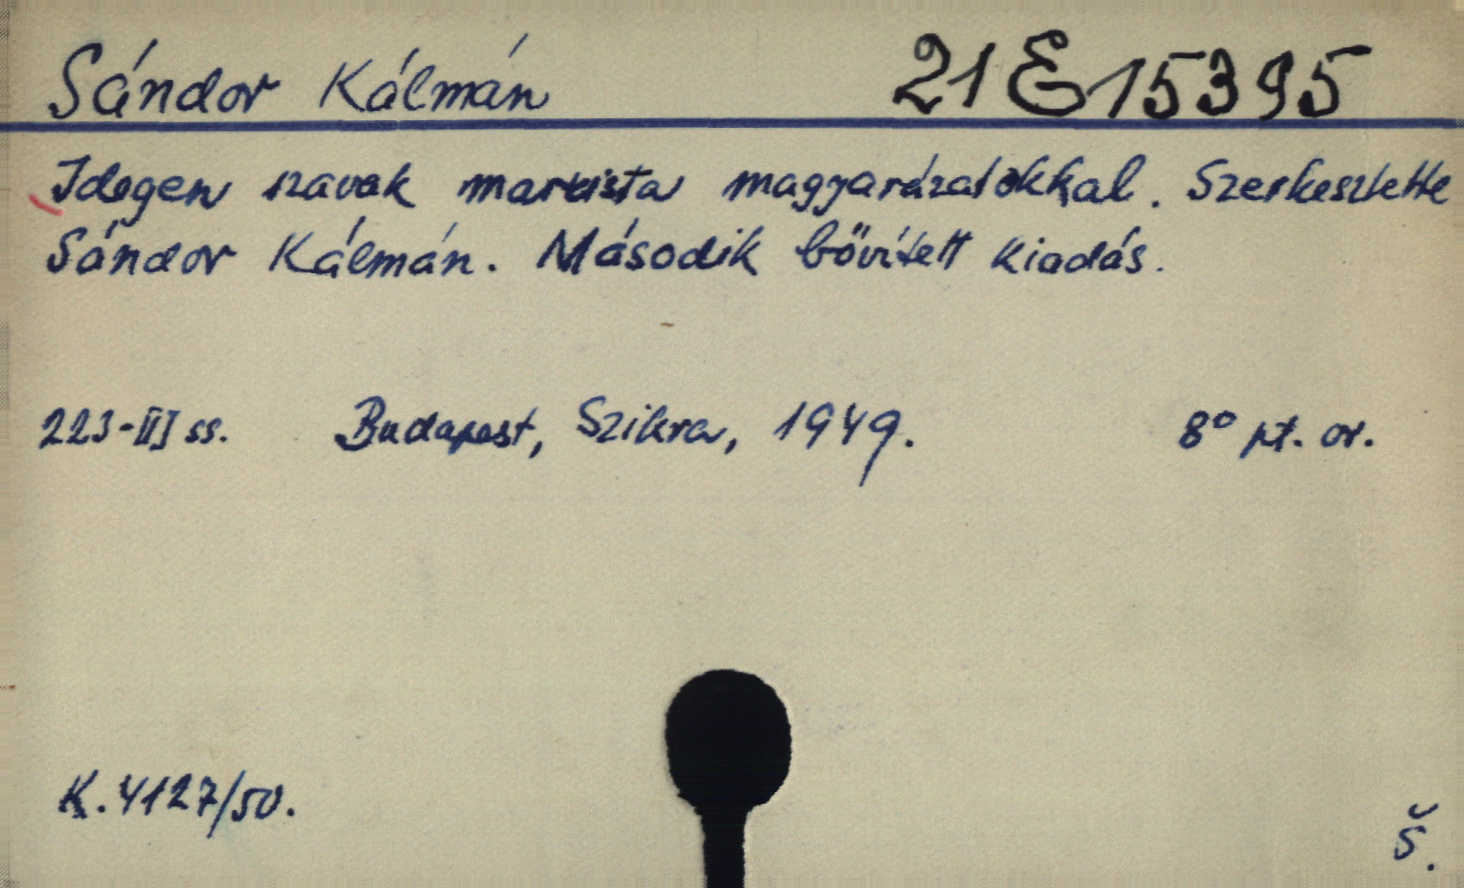 Sándor Kálmán 21 E 15395
Idegen szavak marxista magyarázatokkal. Szerkesztette
Sándor Kálmán. Második bővített kiadás.
223-III ss. Budapest, Szikra, 1949. 8° pt. or.
K. 4127/50.
Š.